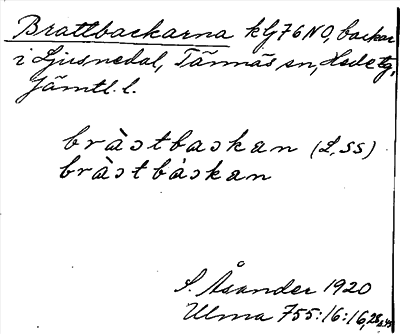 Brattbackarna kG76NO, backar
i Ljusnedal, Tännäs sn, Hede tg,
Jämtl. l.
bràɔtbaskan (L, SS)
bràɔtbáskan
S. Åsander 1920
Ulma 755:16:16,